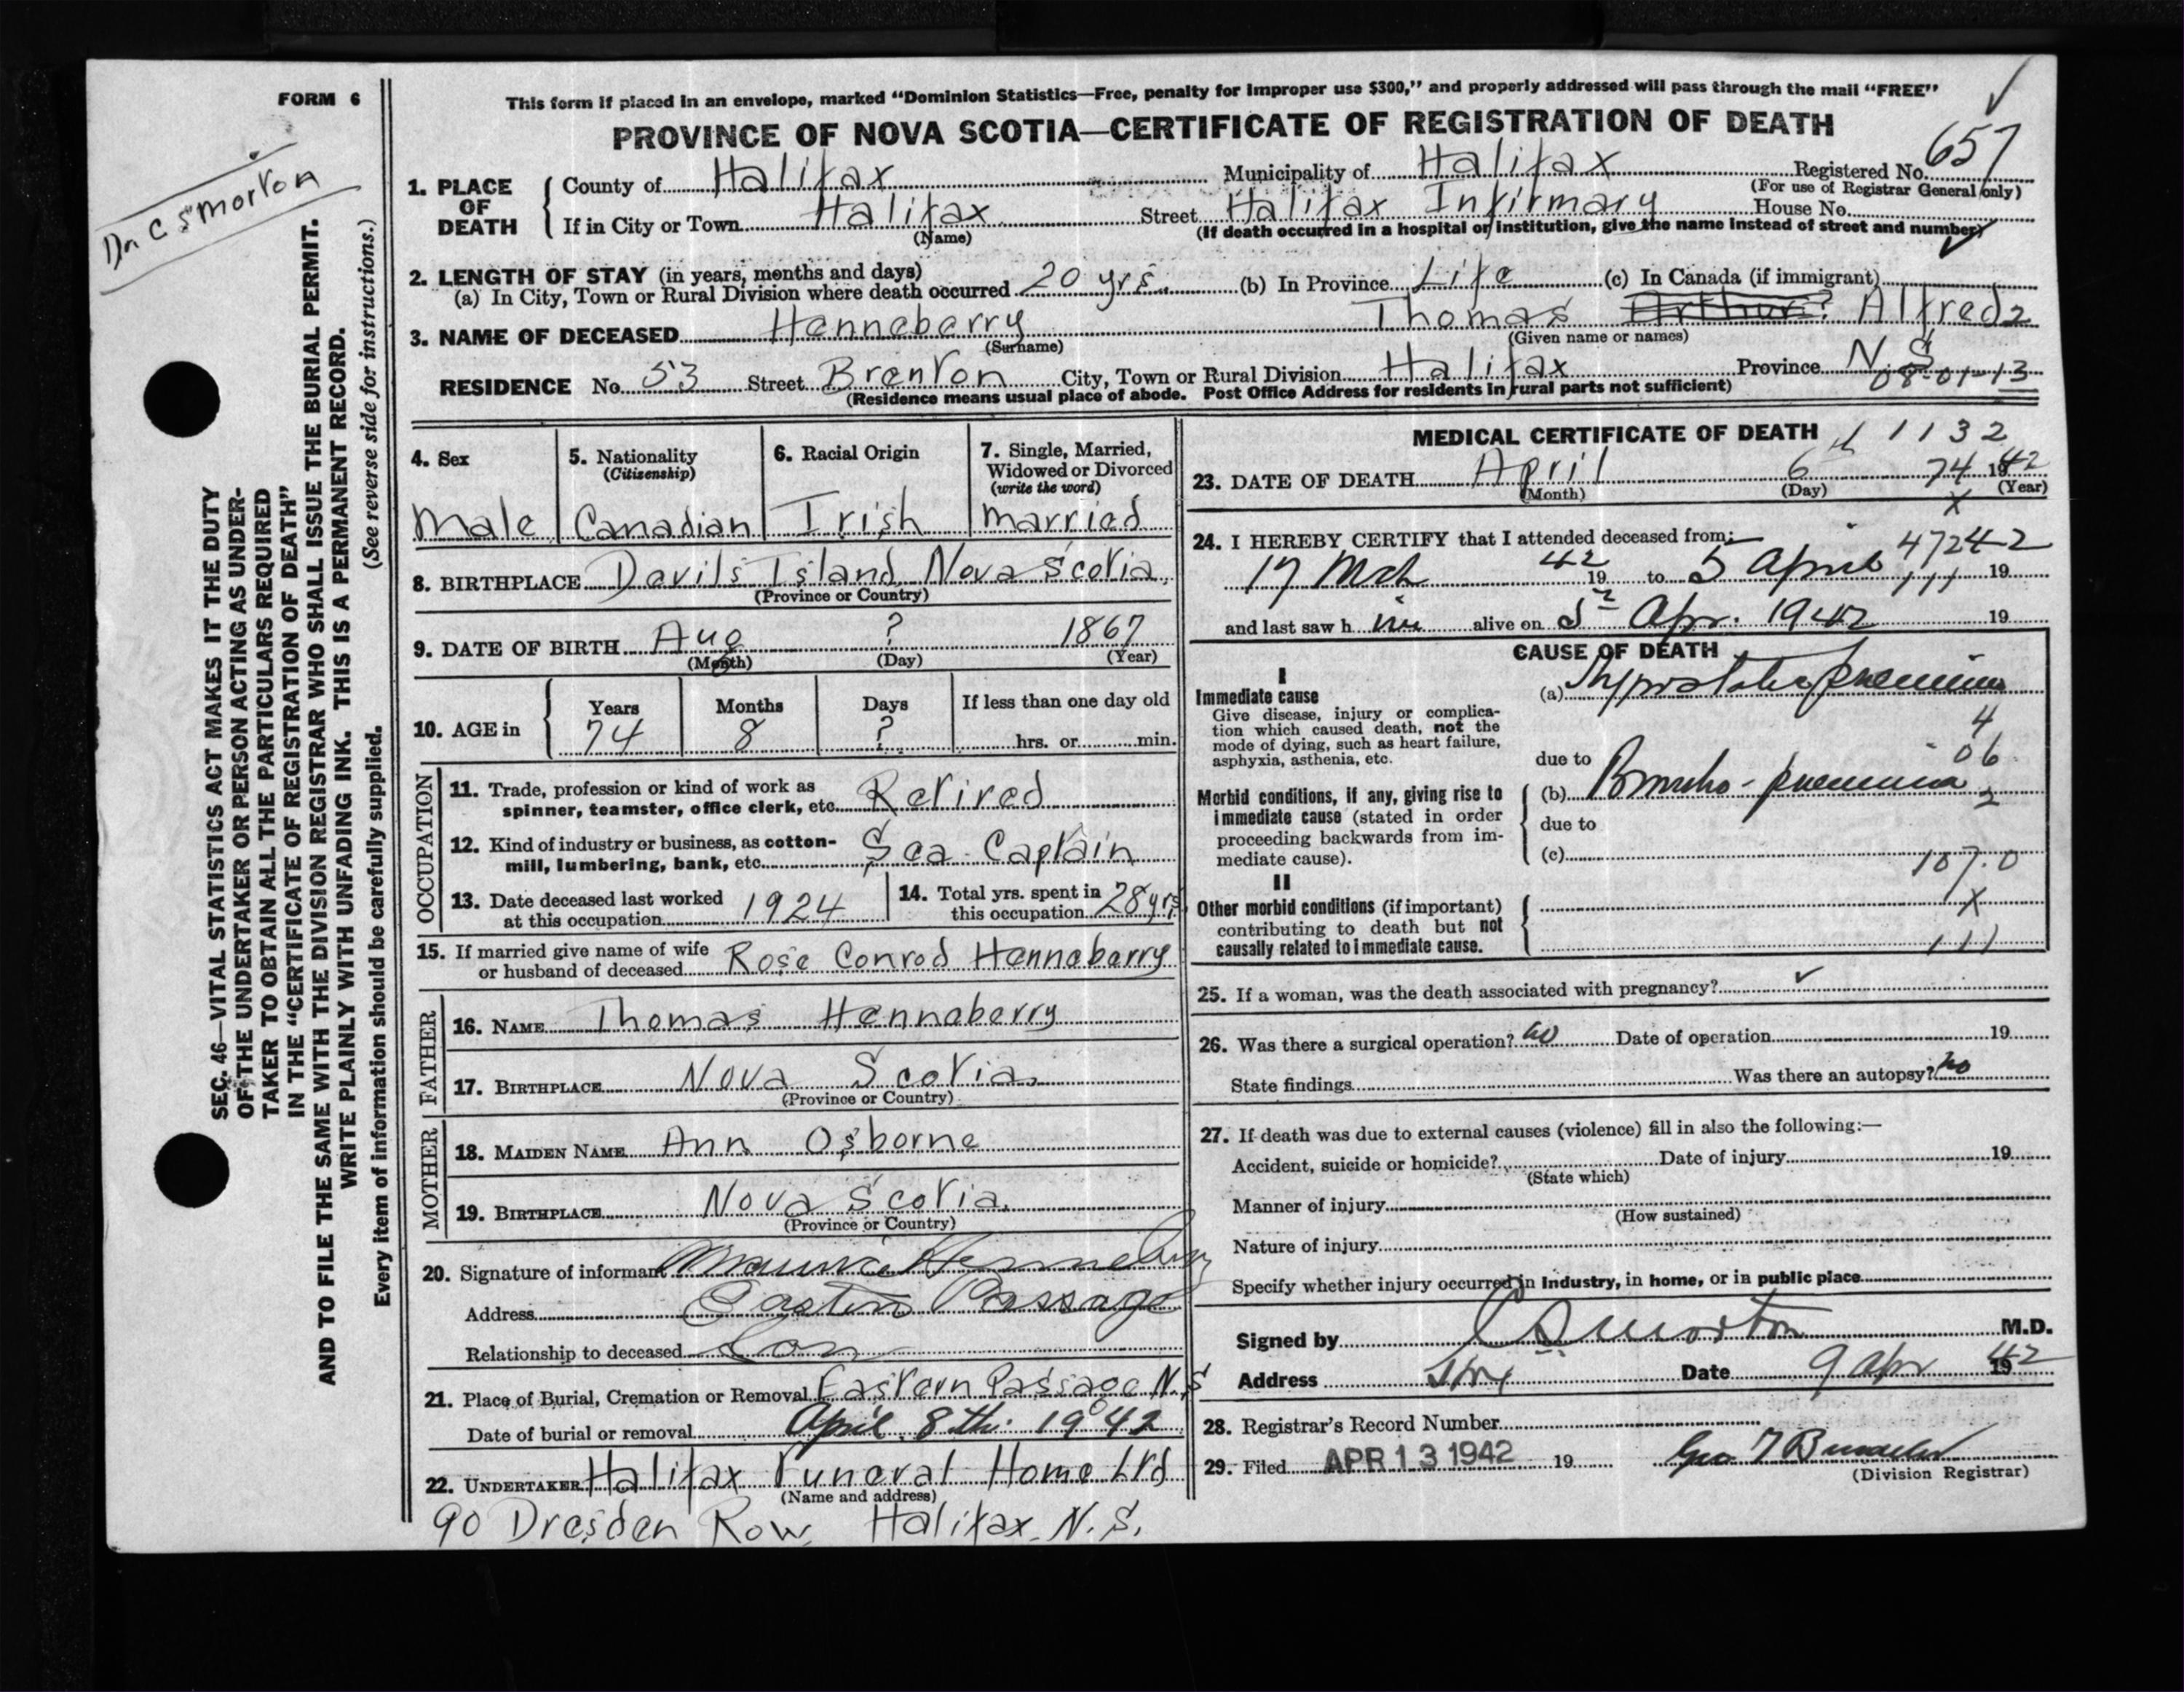 FORM 6
Dr. C S Morton
SEC. 46—VITAL STATISTICS ACT MAKES IT THE DUTY
OF THE UNDERTAKER OR PERSON ACTING AS UNDER-
TAKER TO OBTAIN ALL THE PARTICULARS REQUIRED
IN THE "CERTIFICATE OF REGISTRATION OF DEATH"
AND TO FILE THE SAME WITH THE DIVISION REGISTRAR WHO SHALL ISSUE THE BURIAL PERMIT.
WRITE PLAINLY WITH UNFADING INK. THIS IS A PERMANENT RECORD.
Every item of information should be carefully supplied. (See reverse side for instructions.)
This form if placed in an envelope, marked "Dominion Statistics—Free, penalty for improper use $300," and properly addressed will pass through the mail "FREE"
PROVINCE OF NOVA SCOTIA—CERTIFICATE OF REGISTRATION OF DEATH
1. PLACE OF DEATH
County of Halifax Municipality of Halifax Registered No. 657
(For use of Registrar General only)
If in City or Town Halifax Street Halifax Infirmary House No.
(Name) (If death occurred in a hospital or institution, give the name instead of street and number)
2. LENGTH OF STAY (in years, months and days)
(a) In City, Town or Rural Division where death occurred 20 yrs. (b) In Province Life (c) In Canada (if immigrant)
3. NAME OF DECEASED Henneberry Thomas Arthur? Alfred 2
(Surname) (Given name or names)
RESIDENCE No. 53 Street Brenton City, Town or Rural Division Halifax Province N.S.
08-01-13
(Residence means usual place of abode. Post Office Address for residents in rural parts not sufficient)
4. Sex
Male
5. Nationality
(Citizenship)
Canadian
6. Racial Origin
Irish
7. Single, Married,
Widowed or Divorced
(write the word)
Married
8. BIRTHPLACE Devils Island, Nova Scotia.
(Province or Country)
9. DATE OF BIRTH Aug ? 1867
(Month) (Day) (Year)
8
10. AGE in
Years Months Days If less than one day old
74 8 ? hrs. or min.
OCCUPATION
11. Trade, profession or kind of work as
spinner, teamster, office clerk, etc. Retired
12. Kind of industry or business, as cotton-
mill, lumbering, bank, etc. Sea Captain
13. Date deceased last worked
at this occupation 1924
14. Total yrs. spent in
this occupation 28 yrs.
15. If married give name of wife
or husband of deceased Rose Conrod Henneberry
FATHER
16. NAME Thomas Henneberry
17. BIRTHPLACE Nova Scotia.
(Province or Country)
MOTHER
18. MAIDEN NAME Ann Osborne
19. BIRTHPLACE Nova Scotia.
(Province or Country)
20. Signature of informant Maurice Henneberry
Address Eastern Passage
Relationship to deceased Son
21. Place of Burial, Cremation or Removal Eastern Passage N.S
Date of burial or removal April 8th. 1942
22. UNDERTAKER Halifax Funeral Home Ltd
(Name and address)
90 Dresden Row, Halifax. N.S.
MEDICAL CERTIFICATE OF DEATH 1132
23. DATE OF DEATH April 6th 74 1942
(Month) (Day) (Year)
X
24. I HEREBY CERTIFY that I attended deceased from:—
47242
17 Mch 42 19 to 5 April 111 19
and last saw h im alive on 5th Apr. 1942 19
CAUSE OF DEATH
I
Immediate cause
Give disease, injury or complica-
tion which caused death, not the
mode of dying, such as heart failure,
asphyxia, asthenia, etc.
(a) Hypostatic pneumonia
4
due to 06
Morbid conditions, if any, giving rise to
immediate cause (stated in order
proceeding backwards from im-
mediate cause).
(b) Broncho-pneumonia
2
due to
(c)
107.0
II
Other morbid conditions (if important)
contributing to death but not
causally related to immediate cause.
X
111
25. If a woman, was the death associated with pregnancy?
26. Was there a surgical operation? no Date of operation 19
State findings Was there an autopsy? no
27. If death was due to external causes (violence) fill in also the following:—
Accident, suicide or homicide? Date of injury 19
(State which)
Manner of injury
(How sustained)
Nature of injury
Specify whether injury occurred in industry, in home, or in public place
Signed by C S Morton M.D.
Address Date 9 Apr 1942
28. Registrar's Record Number
29. Filed APR 13 1942 19
(Division Registrar)